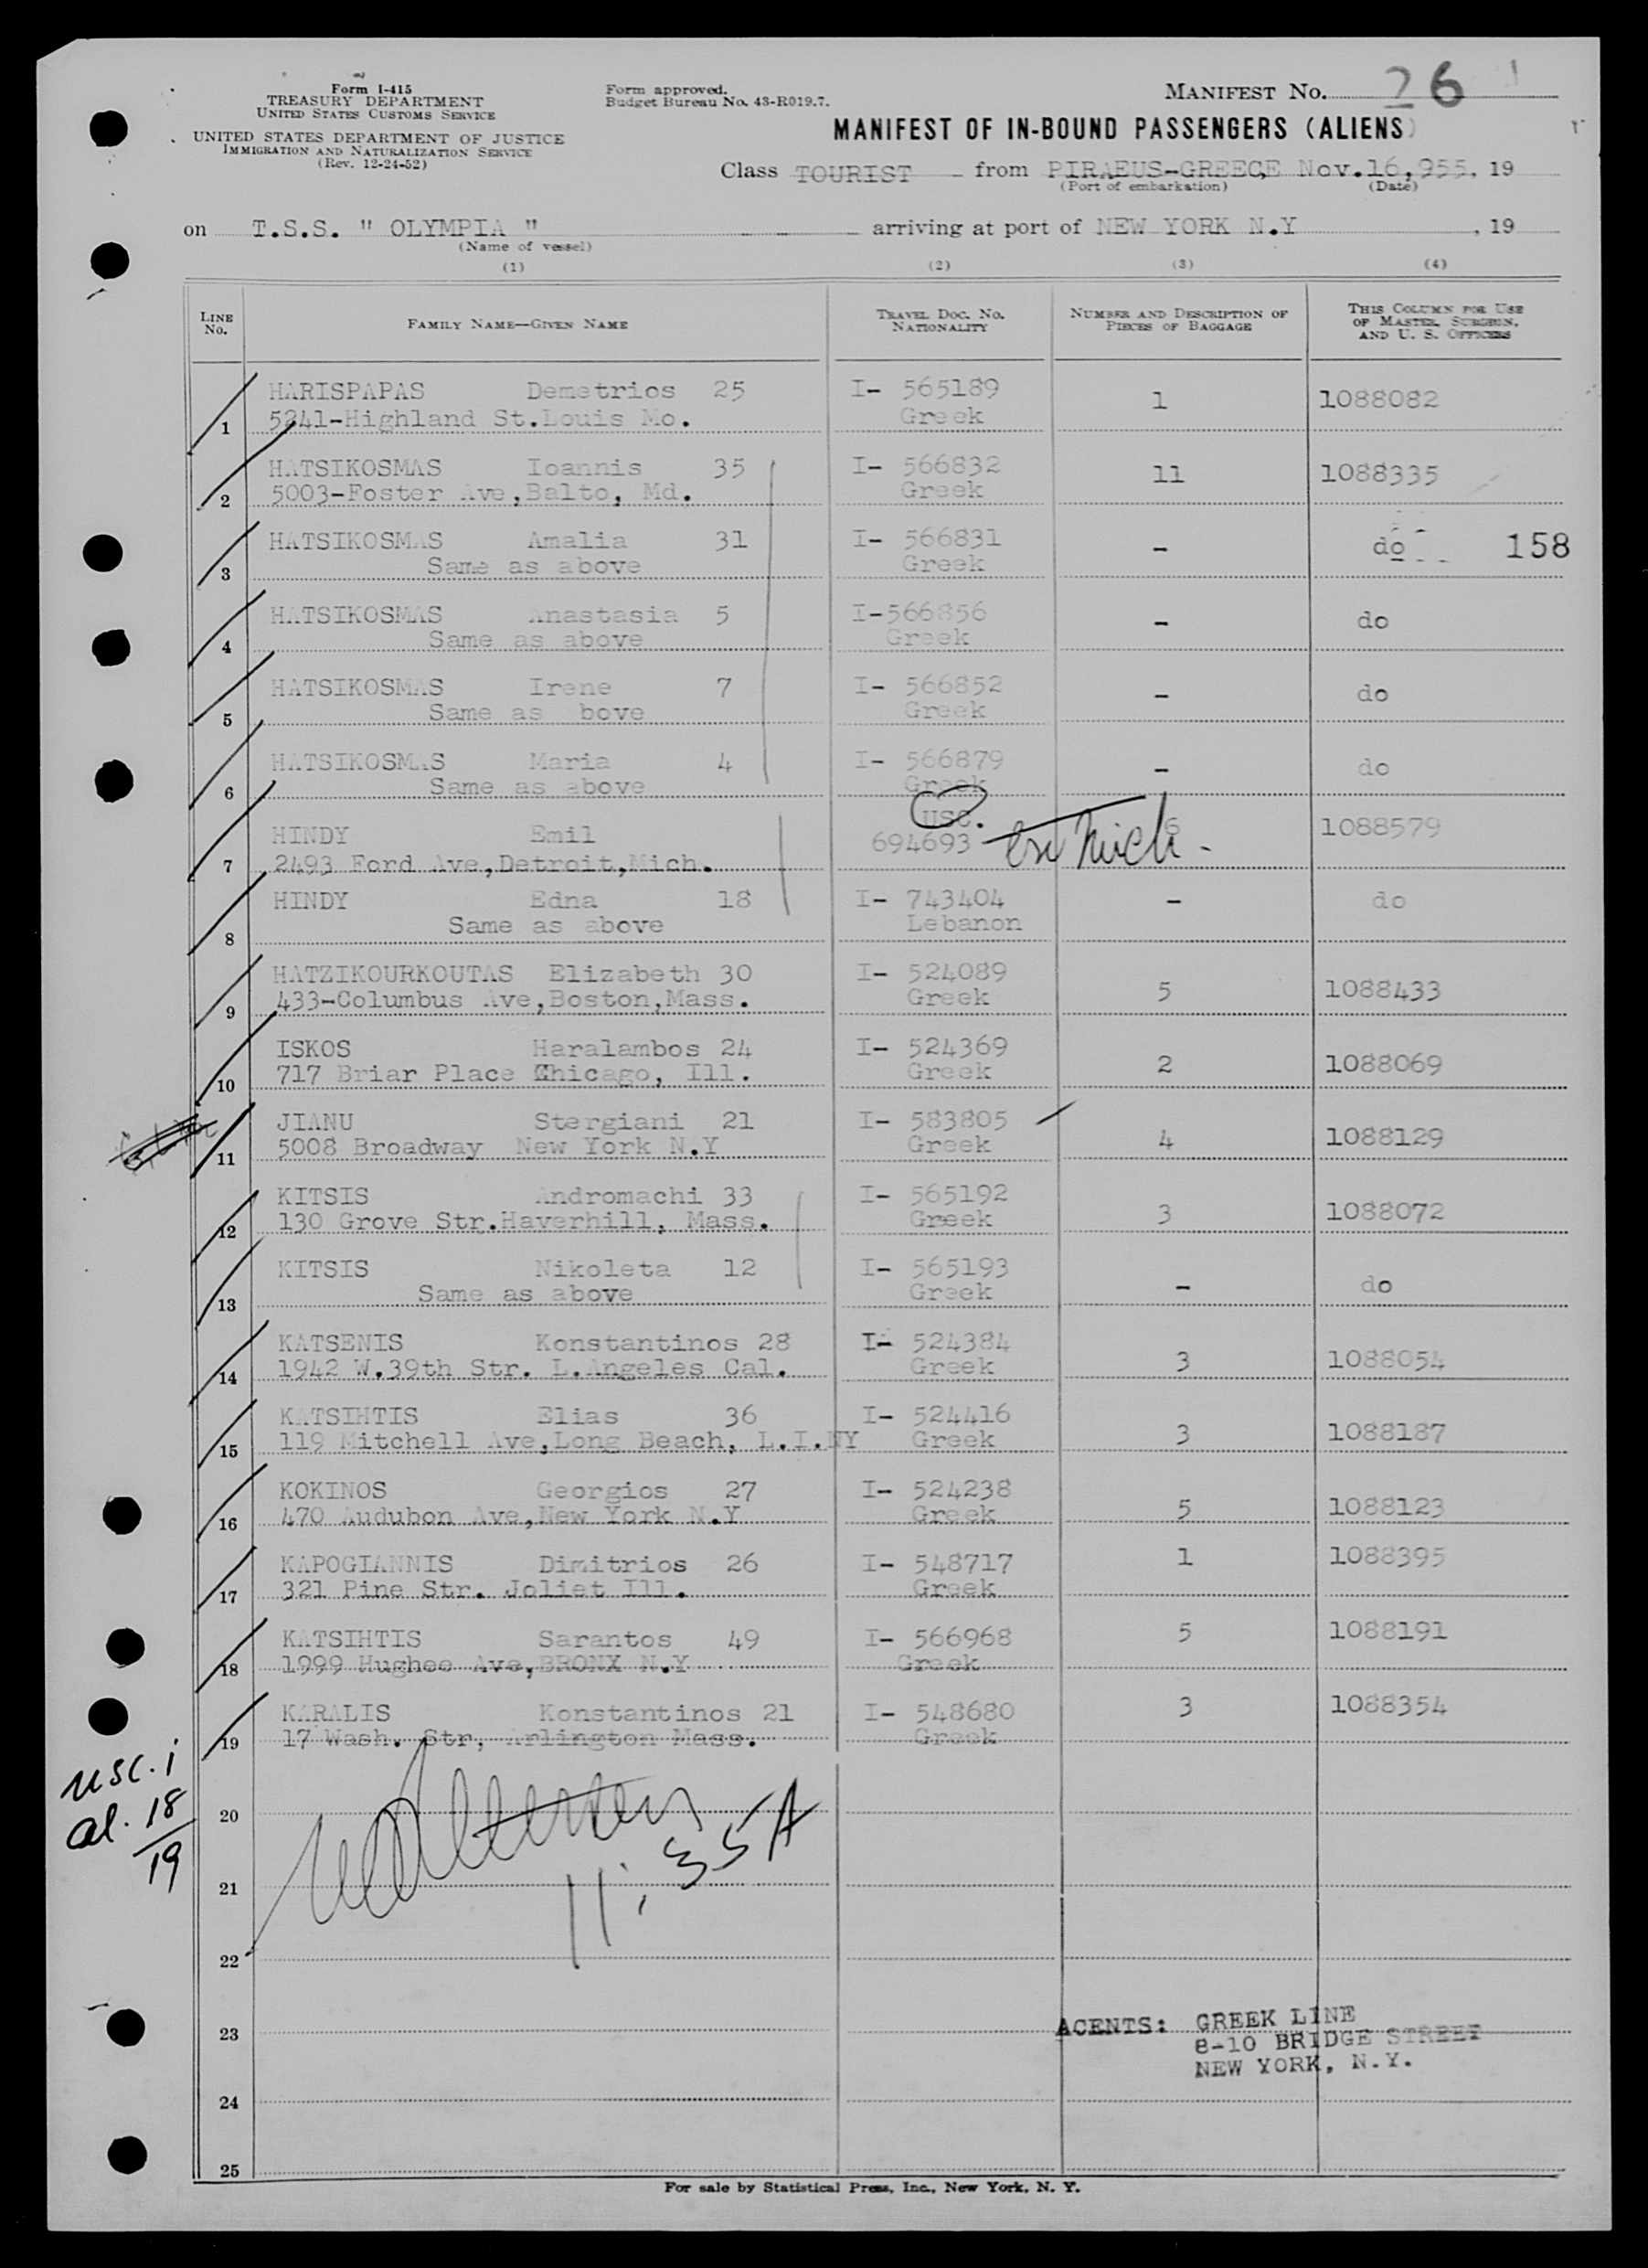 Form I-415
TREASURY DEPARTMENT
UNITED STATES CUSTOMS SERVICE
UNITED STATES DEPARTMENT OF JUSTICE
IMMIGRATION AND NATURALIZATION SERVICE
(Rev. 12-24-52)
Form approved.
Budget Bureau No. 43-R019.7.
MANIFEST No. 26
MANIFEST OF IN-BOUND PASSENGERS (ALIENS)
Class TOURIST from PIRAEUS-GREECE Nov.16,955, 19
(Port of embarkation) (Date)
on T.S.S. " OLYMPIA " arriving at port of NEW YORK N.Y , 19
(Name of vessel)
(1) (2) (3) (4)
LINE No. FAMILY NAME—GIVEN NAME TRAVEL DOC. NO. NATIONALITY NUMBER AND DESCRIPTION OF PIECES OF BAGGAGE THIS COLUMN FOR USE OF MASTER, SURGEON, AND U. S. OFFICERS
HARISPAPAS Demetrios 25 I- 565189 1 1088082
1 5241-Highland St.Louis Mo. Greek
HATSIKOSMAS Ioannis 35 I- 566832 11 1088335
2 5003-Foster Ave,Balto, Md. Greek
HATSIKOSMAS Amalia 31 I- 566831 - do 158
3 Same as above Greek
HATSIKOSMAS Anastasia 5 I-566856 - do
4 Same as above Greek
HATSIKOSMAS Irene 7 I- 566852 - do
5 Same as bove Greek
HATSIKOSMAS Maria 4 I- 566879 - do
6 Same as above Greek
USC.
HINDY Emil 694693 6 1088579
7 2493 Ford Ave,Detroit,Mich.
HINDY Edna 18 I- 743404 - do
8 Same as above Lebanon
HATZIKOURKOUTAS Elizabeth 30 I- 524089 5 1088433
9 433-Columbus Ave,Boston,Mass. Greek
ISKOS Haralambos 24 I- 524369 2 1088069
10 717 Briar Place Chicago, Ill. Greek
JIANU Stergiani 21 I- 583805 4 1088129
11 5008 Broadway New York N.Y Greek
KITSIS Andromachi 33 I- 565192 3 1088072
12 130 Grove Str.Haverhill, Mass. Greek
KITSIS Nikoleta 12 I- 565193 - do
13 Same as above Greek
KATSENIS Konstantinos 28 I- 524384 3 1088054
14 1942 W.39th Str. L.Angeles Cal. Greek
KATSIHTIS Elias 36 I- 524416 3 1088187
15 119 Mitchell Ave,Long Beach, L.I.NY Greek
KOKINOS Georgios 27 I- 524238 5 1088123
16 470 Audubon Ave,New York N.Y Greek
KAPOGIANNIS Dimitrios 26 I- 548717 1 1088395
17 321 Pine Str. Joliet Ill. Greek
KATSIHTIS Sarantos 49 I- 566968 5 1088191
18 1999 Hughes Ave,BRONX N.Y Greek
KARALIS Konstantinos 21 I- 548680 3 1088354
19 17 Wash. Str, Arlington Mass. Greek
usc. 1
al. 18
19
20
11:35 A
21
22
23
AGENTS: GREEK LINE
8-10 BRIDGE STREET
NEW YORK, N.Y.
24
25
For sale by Statistical Press, Inc., New York, N. Y.